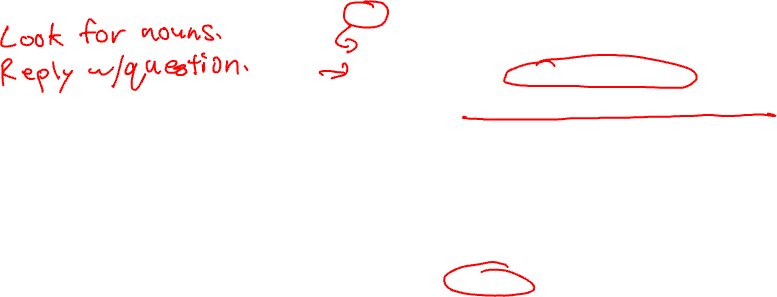 Look for nouns.
Reply w/question.